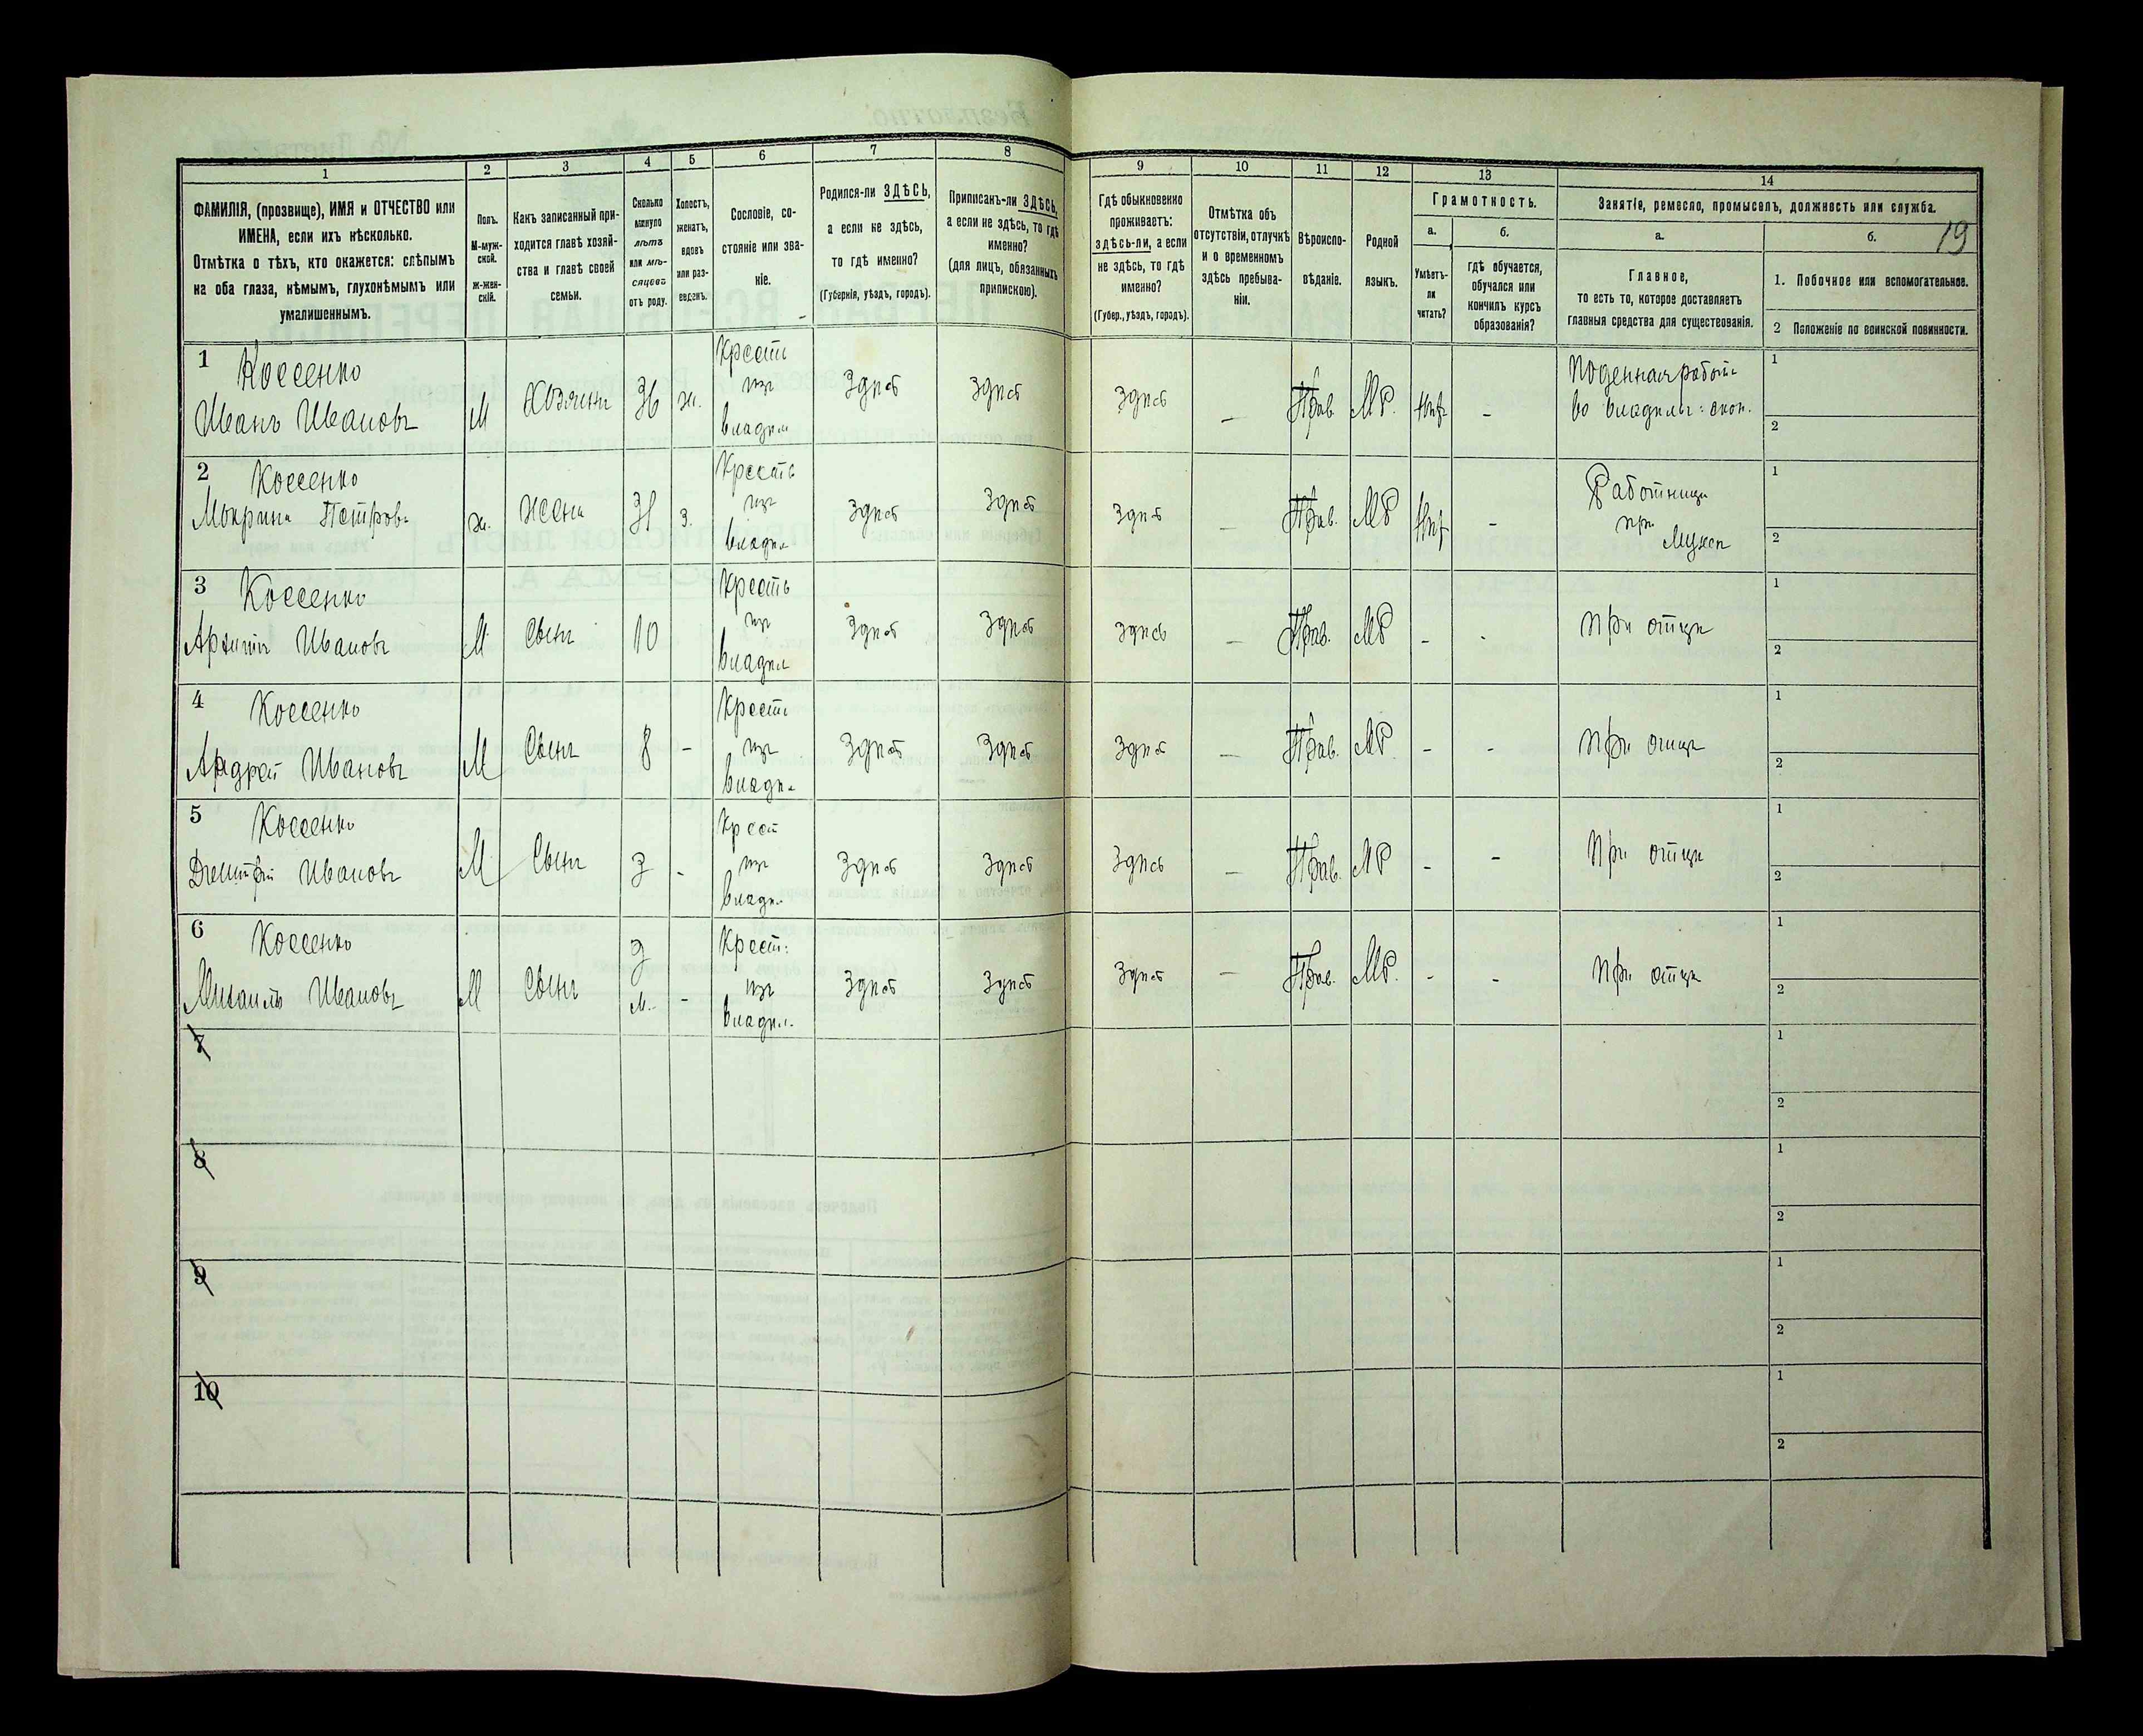 1
2
3
4
5
6
7
8
9
10
11
12
13
14
ФАМИЛІЯ, (прозвище), ИМЯ и ОТЧЕСТВО или
ИМЕНА, если ихъ нѣсколько.
Отмѣтка о тѣхъ, кто окажется: слѣпымъ
на оба глаза, нѣмымъ, глухонѣмымъ или
умалишеннымъ.
Полъ.
М-муж-
ской.
ж-жен-
скій.
Какъ записанный при-
ходится главѣ хозяй-
ства и главѣ своей
семьи.
Сколько
минуло
лѣтъ
или мѣ-
сяцевъ
отъ роду.
Холостъ,
женатъ,
вдовъ
или раз-
веденъ.
Сословіе, со-
стояніе или зва-
ніе.
Родился-ли ЗДѢСЬ,
а если не здѣсь,
то гдѣ именно?
(Губернія, уѣздъ, городъ).
Приписанъ-ли ЗДѢСЬ,
а если не здѣсь, то гдѣ
именно?
(для лицъ, обязанныхъ
припискою).
Гдѣ обыкновенно
проживаетъ:
здѣсь-ли, а если
не здѣсь, то гдѣ
именно?
(Губер., уѣздъ, городъ).
Отмѣтка объ
отсутствіи, отлучкѣ
и о временномъ
здѣсь пребыва-
ніи.
Вѣроиспо-
вѣданіе.
Родной
языкъ.
Грамотность.
а.
Умѣетъ-
ли
читать?
б.
гдѣ обучается,
обучался или
кончилъ курсъ
образованія?
Занятіе, ремесло, промыселъ, должность или служба.
19
а.
Главное,
то есть то, которое доставляетъ
главныя средства для существованія.
б.
1. Побочное или вспомогательное.
2 Положеніе по воинской повинности.
1 Коссенко
Иванъ Ивановъ
М
Хозяинъ
36
ж.
Крестъ
изъ
владѣл
Здѣсь
Здѣсь
Здѣсь
—
Прав.
МР.
Нѣт
-
Поденная работ:
во владѣльч: экон.
1
2
2 Коссенко
Мокрина Петров:
ж.
жена
31
з.
Кресть
изъ
владѣл
Здѣсь
Здѣсь
Здѣсь
—
Прав.
МР
Нѣт
-
Работница
при
Мужѣ
1
2
3 Коссенко
Ивановъ
М
Сынъ
10
Кресть
изъ
владѣл
Здѣсь
Здѣсь
Здѣсь
—
Прав.
МР
-
-
При отцѣ
1
2
4 Коссенко
Андрей Ивановъ
М
Сынъ
8
-
Кресть
изъ
владѣл
Здѣсь
Здѣсь
Здѣсь
—
Прав.
МР.
-
-
При отцѣ
1
2
5 Коссенко
Дмитрій Ивановъ
М
Сынъ
3
-
Крест
изъ
владѣл
Здѣсь
Здѣсь
Здѣсь
—
Прав.
МР
-
-
При отцѣ
1
2
6 Коссенко
Михаилъ Ивановъ
М
Сынъ
м.
-
Крест:
изъ
владѣл.
Здѣсь
Здѣсь
Здѣсь
—
Прав.
МР.
-
-
При отцѣ
1
2
7
1
2
8
1
2
9
1
2
10
1
2